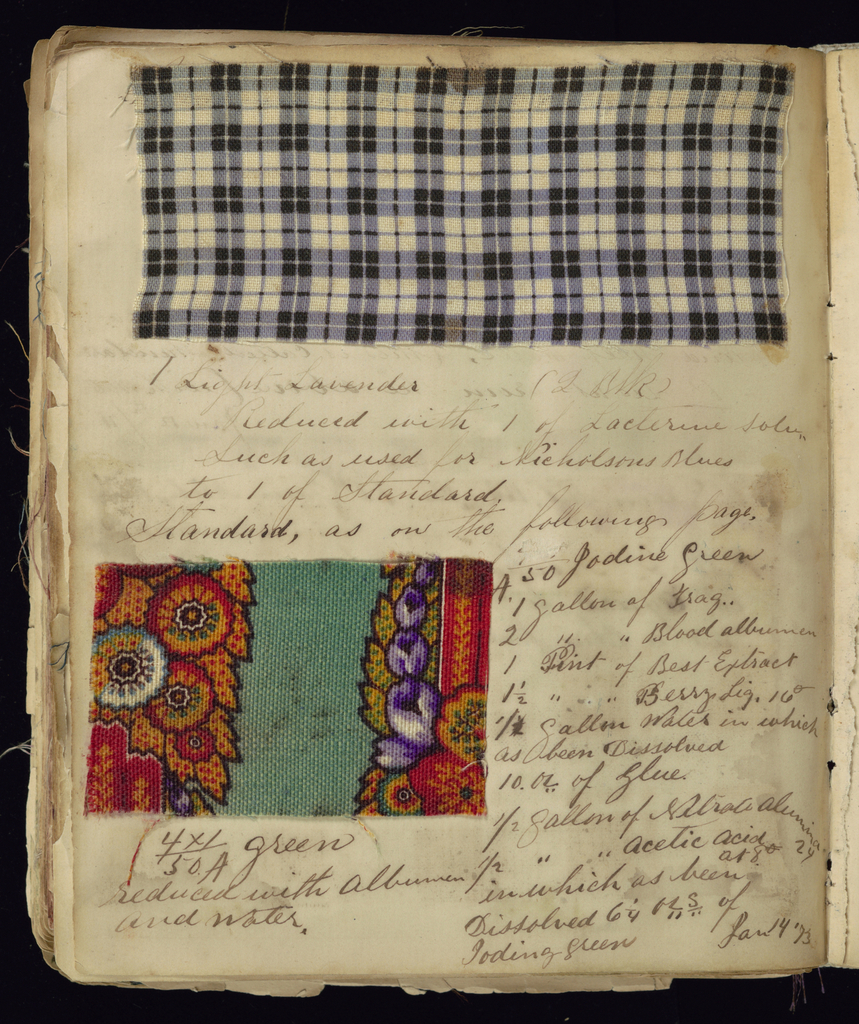 1 Light Lavender (2 Blk)
Reduced with 1 of Lacterine Solu,,
Such as used for Nicholsons Blues
to 1 of Standard.
Standard, as on the following page.
50 Jodine Green
A.
1 gallon of Frag..
2 ,, ,, Blood albumen
1 Pint of Best Extract
1½ ,, ,, Berry Liq. 16°
½ gallon Water in which
as been Dissolved
10. oz of Glue.
½ gallon of Nitrate alumina 24
½ ,, ,, acetic acid at 8°
in which as been
Dissolved 6¼ ozs of
Joding green
Jan 14 '73
4x1 green
50. A
reduced with Albumen
and Water.